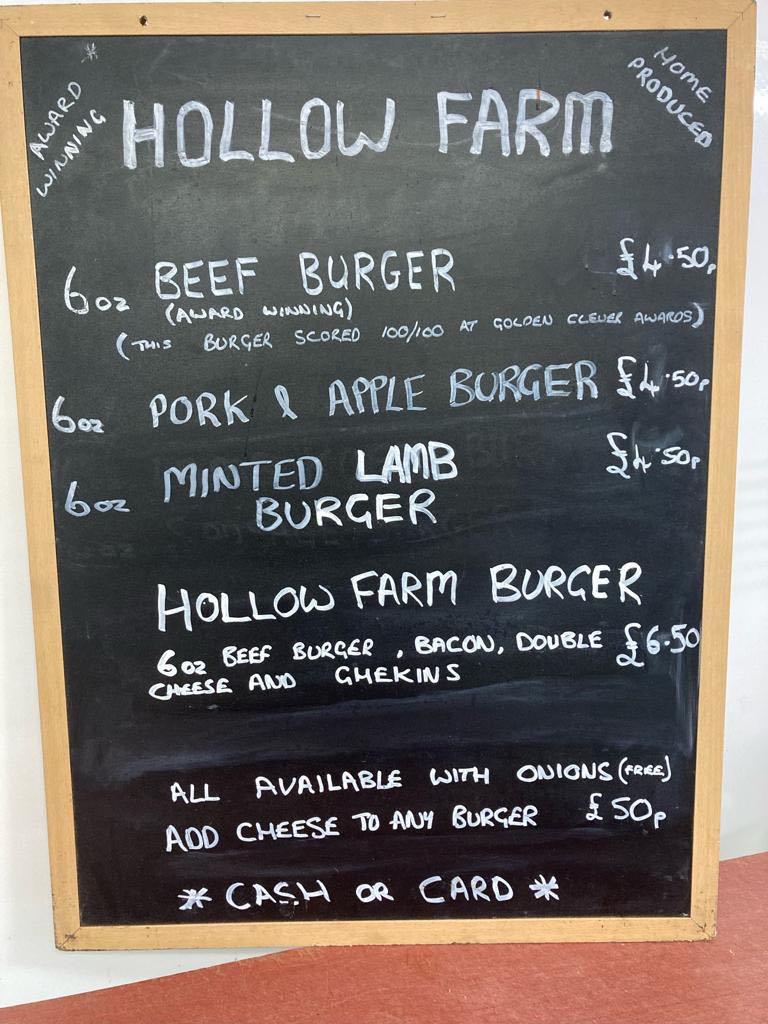 AWARD WINNING *
HOME PRODUCED
HOLLOW FARM
6oz BEEF BURGER £4.50p
(AWARD WINNING)
(THIS BURGER SCORED 100/100 AT GOLDEN CLEVER AWARDS)
6oz PORK & APPLE BURGER £4.50p
6oz MINTED LAMB £4.50p
BURGER
HOLLOW FARM BURGER
6oz BEEF BURGER, BACON, DOUBLE £6.50
CHEESE AND GHEKINS
ALL AVAILABLE WITH ONIONS (FREE)
ADD CHEESE TO ANY BURGER £50p
* CASH OR CARD *